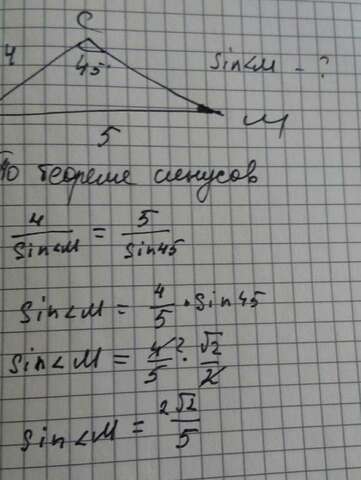 C
4
45°
sin<M - ?
M
5
По теореме синусов
4/sin<M = 5/sin45
sin<M = 4/5 · sin45
sin<M = 4/5 2 · √2/2
sin<M = 2√2/5